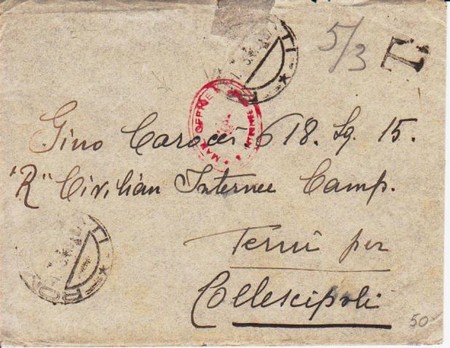 5/3
T
Gino Caroccí 618. Sq. 15.
"R" Civilian Internee Camp.
Terni per
Collescipoli
50